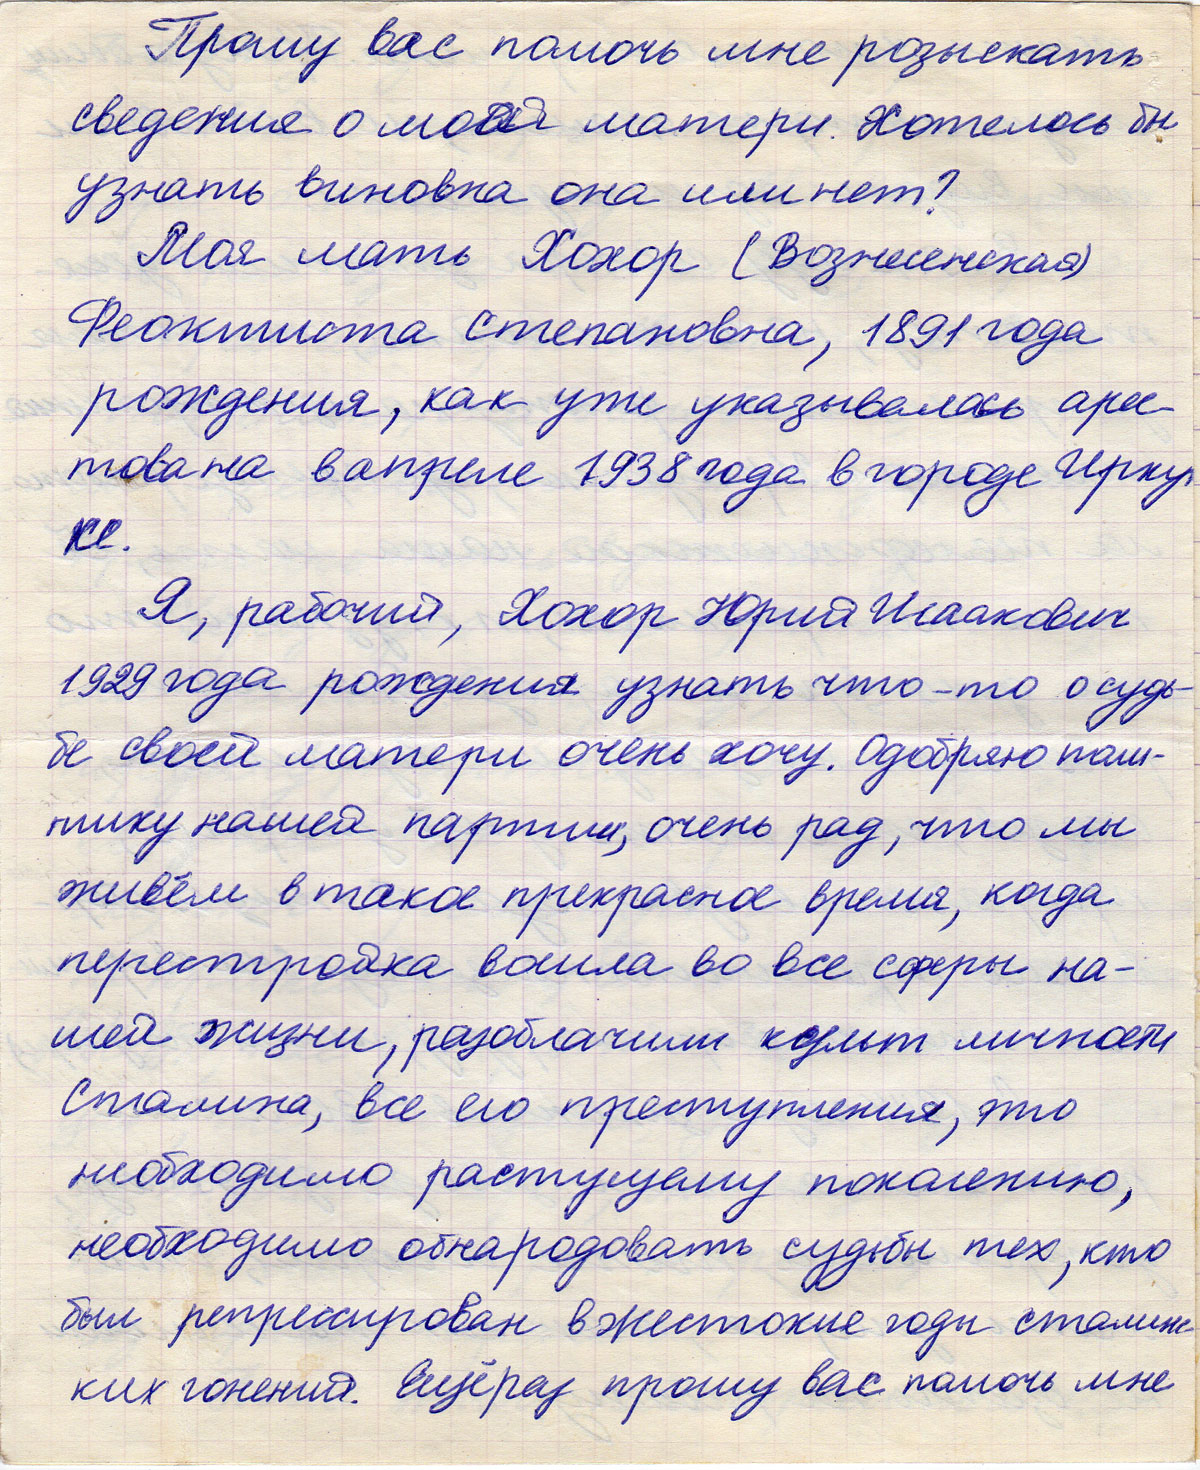 Прошу вас помочь мне розыскать
сведения о моей матери. Хотелось бы
узнать виновна она или нет?
Моя мать Хохор (Вознесенская)
Феоктиста Степановна, 1891 года
рождения, как уже указывалось арес-
тована в апреле 1938 года в городе Иркут
ке.
Я, рабочий, Хохор Юрий Исаакович
1929 года рождения узнать что-то о судь-
бе своей матери очень хочу. Одобряю поли-
тику нашей партии, очень рад, что мы
живём в такое прекрасное время, когда
перестройка вошла во все сферы на-
шей жизни, разоблачили культ личности
Сталина, все его преступления, это
необходимо растущему поколению,
необходимо обнародовать судьбы тех, кто
был репрессирован в жестокие годы сталинс
ких гонений. Ещё раз прошу вас помочь мне